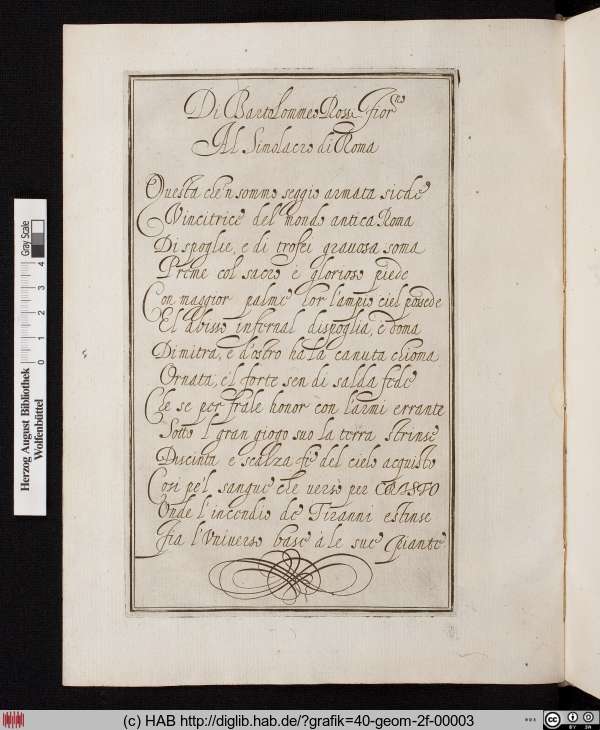 Di Bartolommeo Rossi fior.no
Al Simolacro di Roma
Questa che'n sommo seggio armata siede
Vincitrice del mondo antica Roma
Di spoglie, e di trofei grauosa soma
Preme col sacro e glorioso piede
Con maggior palme hor l'ampio ciel possede
El abisso infernal dispoglia, e doma
Di mitra, e d'ostro ha la canuta chioma
Ornata, e'l forte sen di salda fede
Che se per frale honor con l'armi errante
Sotto 'l gran giogo suo la terra strinse
Discinta e scalza fe del cielo acquisto
Così pe'l sangue che versò per CRISTO
Onde l'incendio de Tiranni estinse
Fia l'Vniuerso base à le sue piante.
Herzog August Bibliothek
Wolfenbüttel
0 1 2 3 4
Gray Scale
(c) HAB http://diglib.hab.de/?grafik=40-geom-2f-00003
cc BY SA